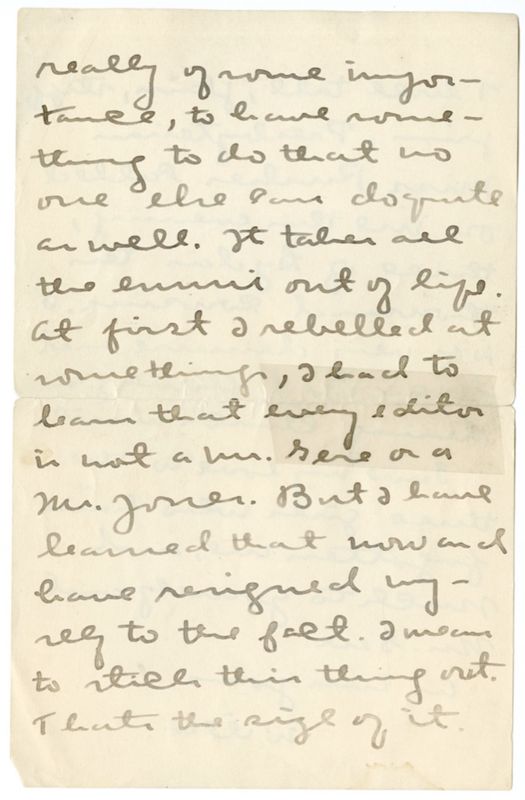 really of some impor-
tance, to have some-
thing to do that no
one else can do quite
as well. It takes all
the ennui out of life.
At first I rebelled at
some things, I had to
learn that every editor
is not a Mr. Gere or a
Mr. Jones. But I have
learned that now and
have resigned my-
self to the fact. I mean
to stick this thing out.
Thats the size of it.